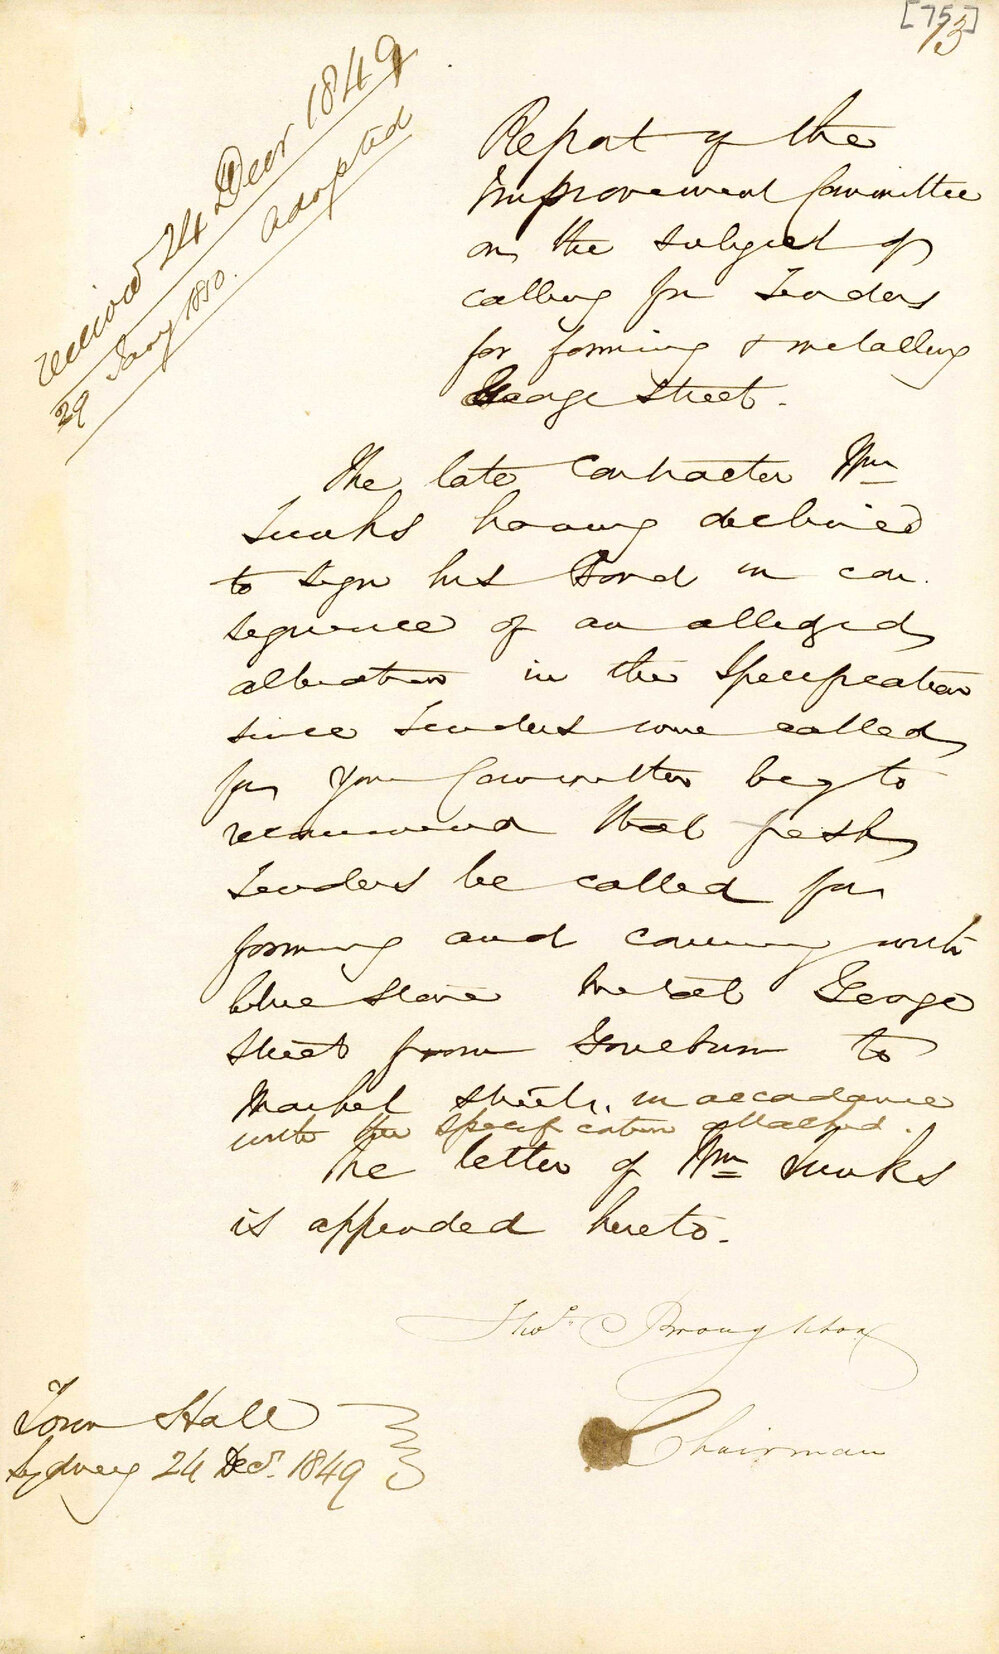 [75]
73
received 24 Decr 1849
29 Jany 1850. Adopted
Report of the
Improvement Committee
on the subject of
calling for Tenders
for forming & metalling
George Street.
The late Contractor Wm
Junks having declined
to sign his Bond in con
sequence of an alleged
alteration in the Specification
since Tenders were called
for your Committee beg to
recommend that fresh
Tenders be called for
forming and covering with
blue stone metal George
Street from Goulburn to
Market Streets. in accordance
with the specification attached.
The letter of Wm Junks
is appended hereto.
Thos. Broughton
Chairman
Town Hall
Sydney 24 Decr. 1849